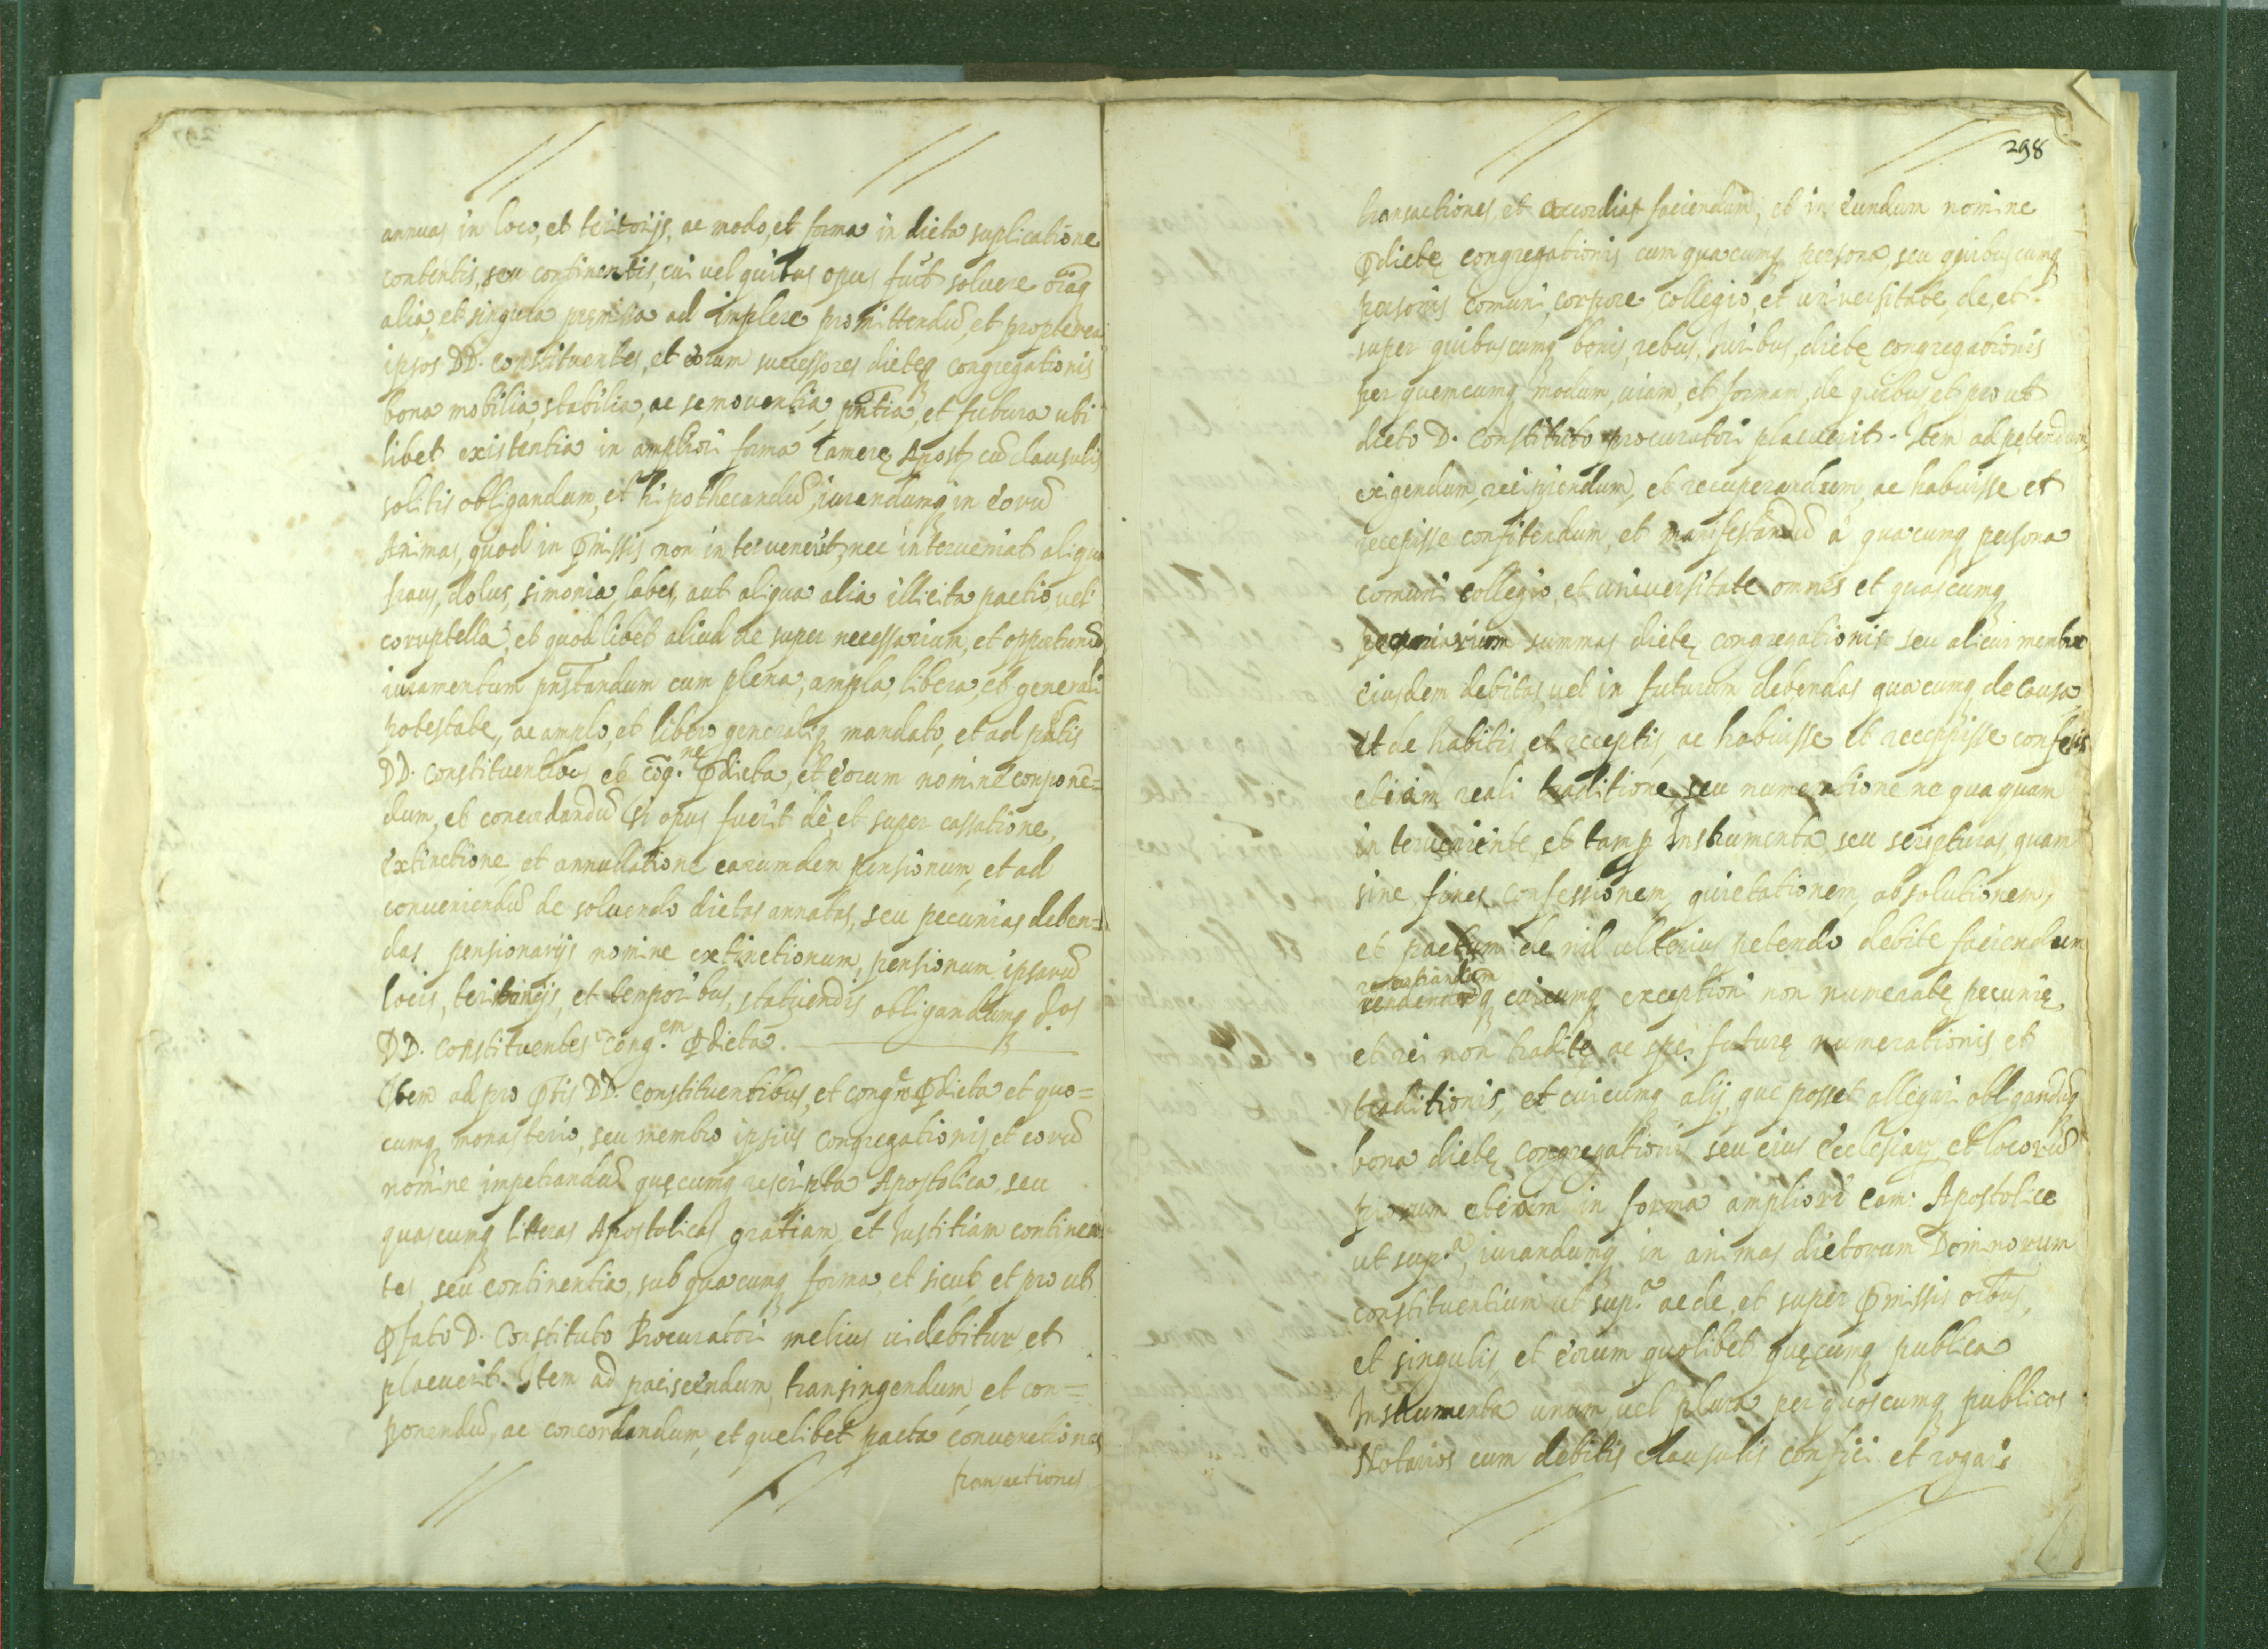 annuas in loco, et teritorijs, ac modo, et forma in dicta suplicatione
contentis, seu continentis, cui vel quibus opus fuit solvere oīaq
alia, et singula premissa ad implere promittendū, et propterea
ipsos DD. constituentes, et eorum successores dicteq congregationis
bona mobilia, stabilia, ac semoventia, pn̄tia, et futura ubi
libet existentia in ampliori forma Camerę Apost. cū clausulis
solitis obligandum, et hipothecandū, iurandumq in eorū
Animas, quod in p̄missis non intervenerit, nec interveniat aliqua
fraus, dolus, simonia, labes, aut aliqua alia illicita pactio vel
coruptella, et quod libet aliud de super necessarium, et opportunū
iuramentum prestandum cum plena, ampla, libera, et generali
potestate, ac amplo, et libero generaliq mandato, et ad p̄ntis
DD. constituentibus et cōg.ne p̄dicta, et eorum nomine conponē=
dum, et concordandū si opus fuerit de, et super cassatione,
extinctione, et annullatione earumdem pensionum, et ad
conveniendū de solvendo dictas annatas, seu pecunias deben=
das pensionarijs nomine extinctionum, pensionum ipsarū
locis, teritorijs, et temporibus, statuendis obligandumq d.os
DD. constituentes Cong.em p̄dictā.
Item ad pro p̄tis DD. constituentibus, et congne p̄dicta et quo=
cumq monasterio, seu membro ipsius Congregationis, et eorū
nomine impetrandū quęcumq rescripta Apostolica, seu
quascumq litteras Apostolicas gratiam, et Iustitiam continen
tes, seu continentia, sub quacumq forma, et sicut, et pro ut
p̄fato D. Constituto Procuratori melius videbitur et
placuerit. Item ad paciscendum, transingendum, et con=
ponendū, ac concordandum, et quelibet pacta conventiones
transactiones
298
transactiones et concordias faciendum, et in eundum nomine
p̄dictę congregationis cum quacumq persona, seu quibuscumq
personis comuni, corpore collegio, et universitate, de, et
super quibuscumq bonis, rebus, Iuribus, dictę congregationis
per quemcumq modum, viam, et formam, de quibus et pro ut
dicto D. Constituto procuratori placuerit. Item ad petendum,
exigendum, recipiendum, et recuperandum, ac habuisse et
recepisse confitendum, et manifestandū à quacumq persona
comuni collegio, et universitate omnes et quascumq
pecuniarum summas dictę congregationis seu alicui membro
eiusdem debitas, vel in futurum debendas quacumq de causa
et de habitis, et receptis, ac habuisse et receppisse confesis
etiam reali traditione, seu numeratione ne quaquam
interveniente, et tam p Instrumenta seu scripturas, quam
sine, fines, confessionem, quietationem, absolutionem,
et pactum de nil ulterius petendo debite faciendum
renuntiandum
cuicumq exceptioni non numeratę pecunię
et rei non traditę, ac spei futurę numerationis et
traditionis, et cuicumq alij, que posset allegari obligandūq
bona dictę congregationis seu eius Ecclesiar. et locorū
piorum etiam in forma ampliori Cam. Apostolice
ut sup.a, iurandumq in animas dictorum Dominorum
constituentium ut sup.a ac de, et super p̄missis oībus,
et singulis, et eorum quolibet quęcumq publica
Instrumenta unum, vel plura per quoscumq publicos
Notarios cum debitis clausulis confici et rogari